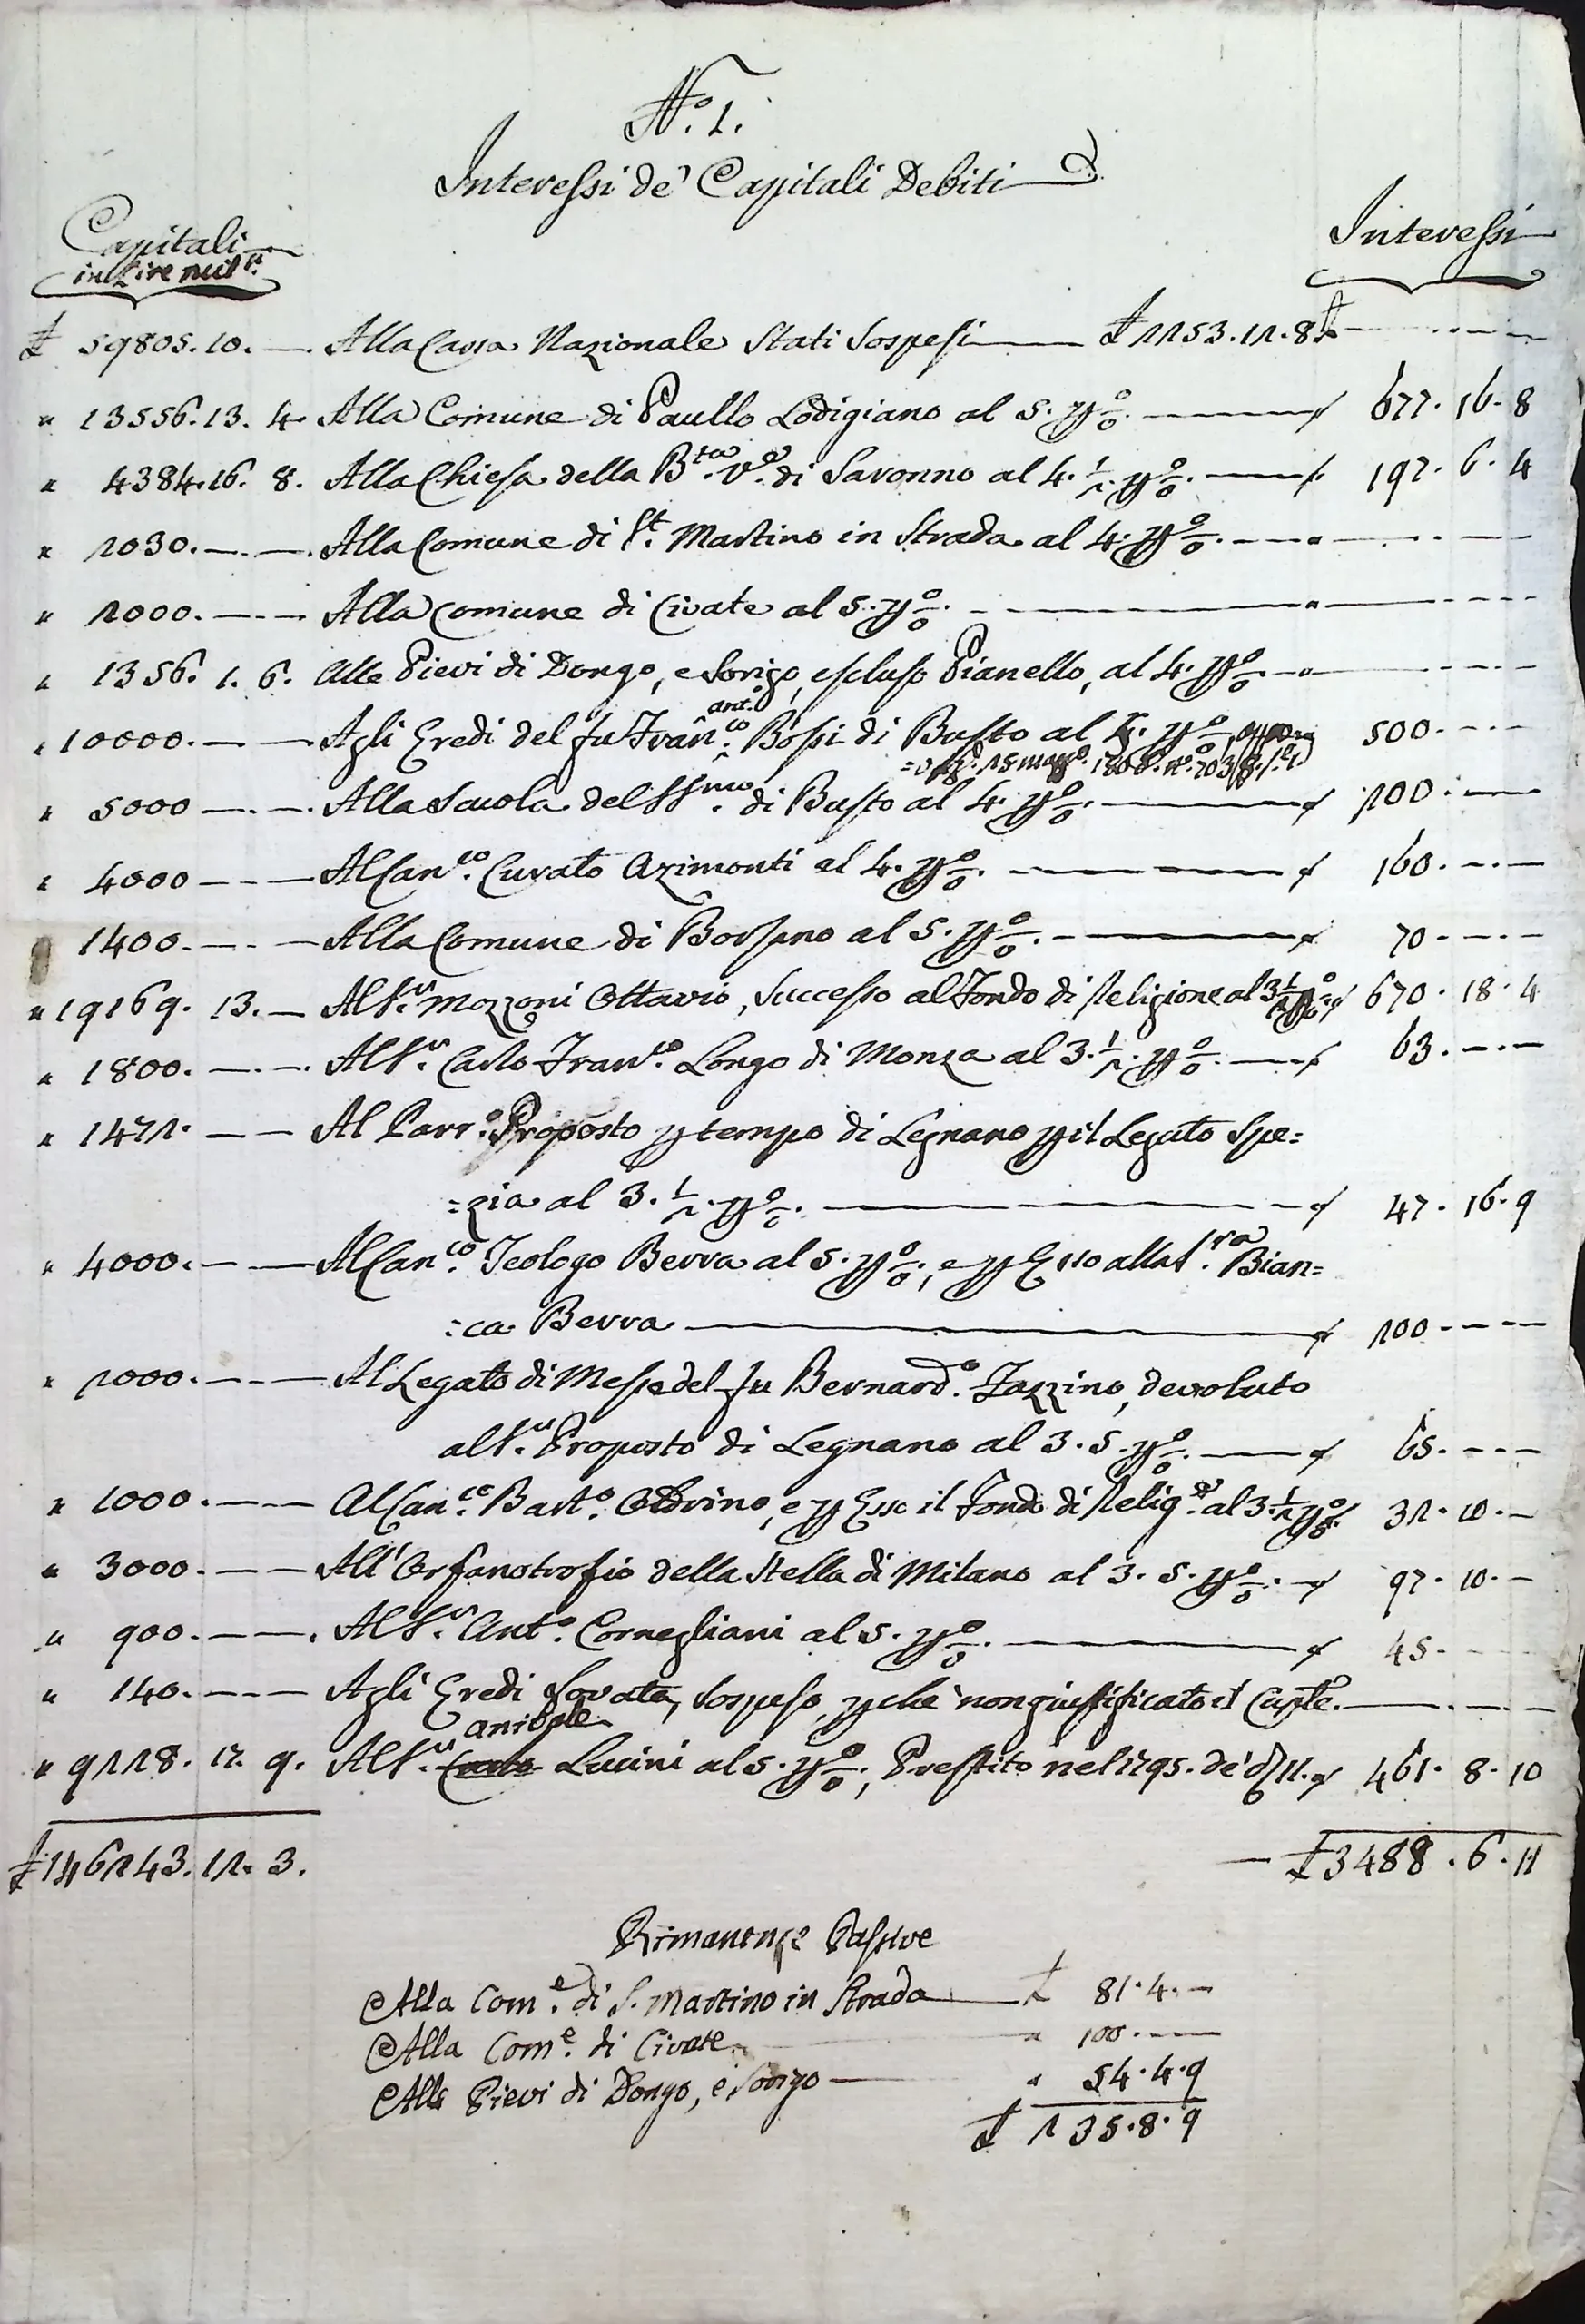 N.º 1.
Interessi de' Capitali Debiti
Capitali
in Lire mil.ⁱ
Interessi
£ 59805. 10. — Alla Cassa Nazionale Stati Sospesi — £ 2253. 12. 8 £ —
" 13556. 13. 4. Alla Comune di Paullo Lodigiano al 5. p% — " 677. 16. 8
" 4384. 16. 8. Alla Chiesa della B.ta V.e di Saronno al 4. ½. p% — " 197. 6. 4
" 2030. — — Alla Comune di S.t Martino in Strada al 4. p% — " —
" 2000. — — Alla Comune di Civate al 5. p% — " —
" 1356. 1. 6. Alle Pievi di Dongo, e Sorigo, escluso Pianello, al 4. p% — " —
ant.o
" 10000. — — Agli Eredi del fu Fran.co Bossi di Busto al 5. p% 500. —
" 5000 — — Alla Scuola del SS.mo di Busto al 4. p% — " 200. —
" 4000 — — Al Can.co Curato Azimonti al 4. p% — " 160. —
" 1400. — — Alla Comune di Borsano al 5. p% — " 70. —
" 19169. 13. — Al S.r Mozzoni Ottavio, successo al Fondo di Religione al 3 ½ p% " 670. 18. 4
" 1800. — — Al S.r Carlo Fran.co Longo di Monza al 3. ½. p% — " 63. —
" 1472. — — Al Parr.o Proposto p tempo di Legnano p il Legato Spe=
=zia al 3. ½. p% — " 47. 16. 9
" 4000. — — Al Can.co Teologo Berra al 5. p%, e p Esso alla S.ra Bian=
=ca Berra — " 200 —
" 2000. — — Al Legato di Messe del fu Bernard.o Tazzino, devoluto
al S.r Proposto di Legnano al 3. 5. p% — " 65. —
" 1000. — — Al Can.co Bart.o Oldrino, e p Esso il Fondo di Relig.e al 3. ½ p% 32. 10. —
" 3000. — — All' Orfanotrofio della Stella di Milano al 3. 5. p% — " 97. 10. —
" 900. — — Al S.r Ant.o Cornegliani al 5. p% — " 45. —
" 140. — — Agli Eredi Lovata, sospeso, p chè non giustificato il Cap.le —
Anibale
" 9228. 17. 9. Al S.r Carlo Lucini al 5. p%, Prestito nel 1795. de' " 461. 8. 10
£ 146243. 12. 3. — £ 3488. 6. 11
Rimanenze Passive
Alla Com.e di S. Martino in Strada — £ 81. 4. —
Alla Com.e di Civate — " 100. —
Alle Pievi di Dongo, e Sorigo — " 54. 4. 9
£ 235. 8. 9